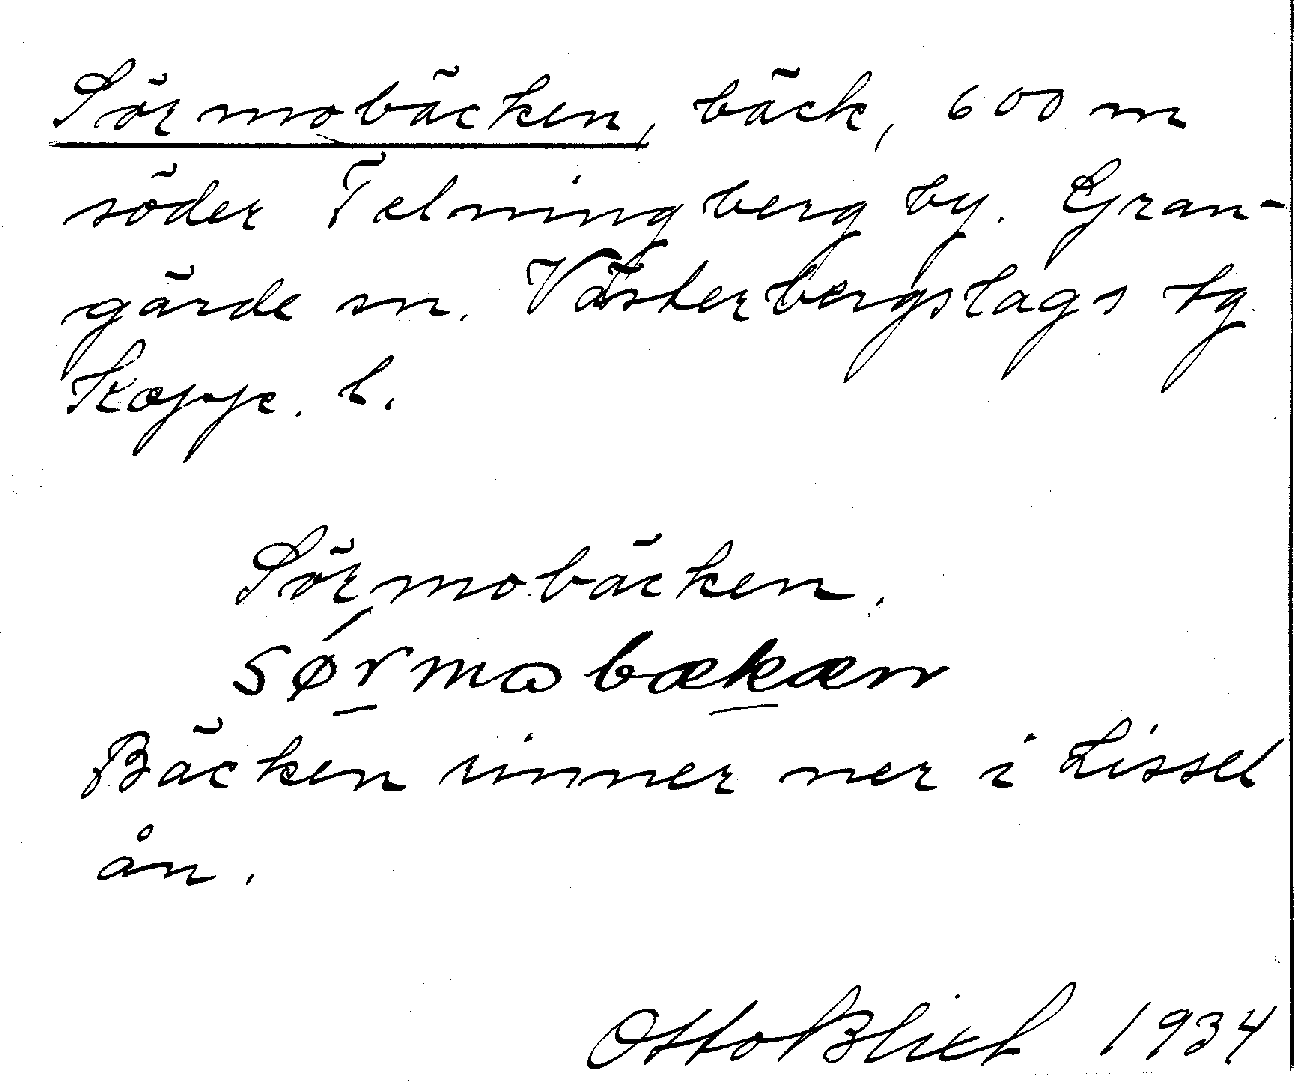 Sörmobäcken, bäck, 600 m
söder Telningberg by. Gran-
gärde sn. Västerbergslags tg
Kopp. l.
Sörmobäcken.
sørmabækæn
Bäcken rinner ner i Lissel
ån.
Otto Blixt 1934